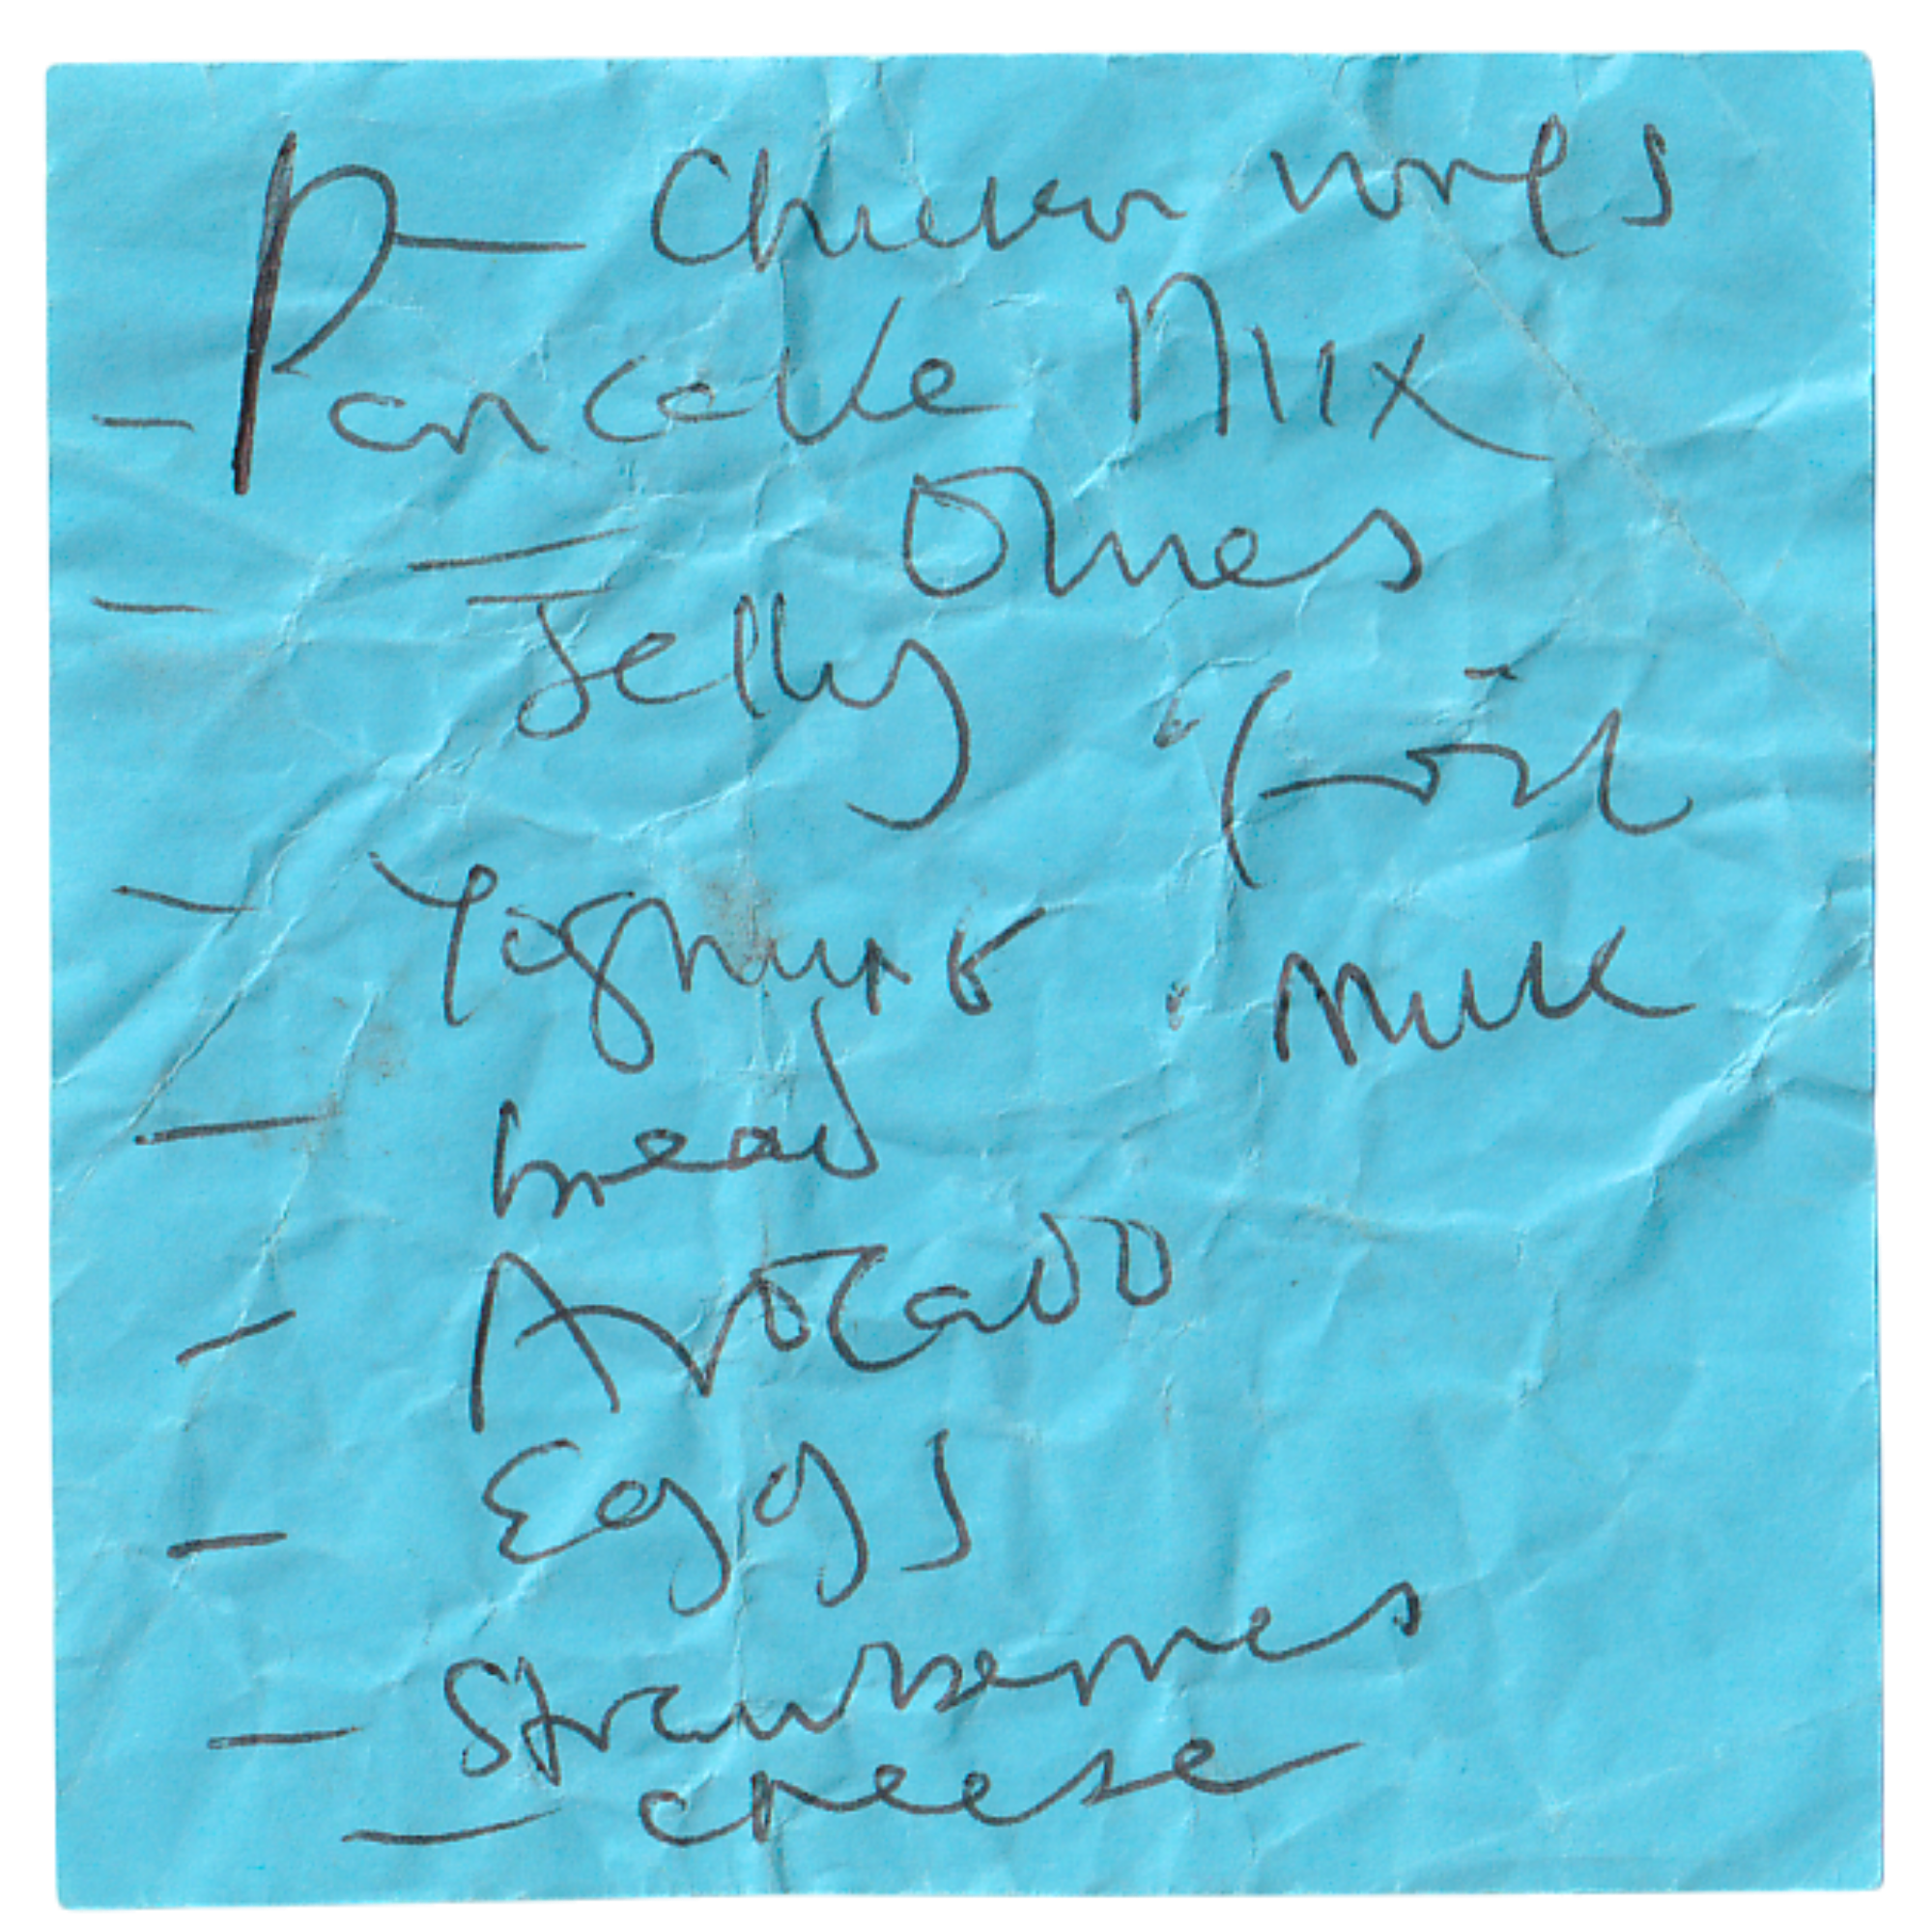 - Chicken wings
- Pancake Mix
- Olives
- Jelly
· Foil
- Yoghurt
· Milk
- bread
- Avocado
- Eggs
- Strawberries
- cheese